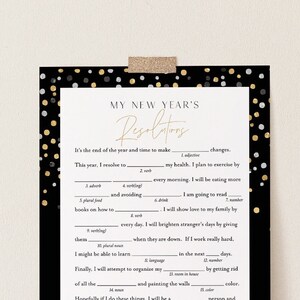 MY NEW YEAR'S
Resolutions
It's the end of the year and time to make ________ changes.
1. adjective
This year, I resolve to ________ my health. I plan to exercise by
2. verb
________ ________ every morning. I will be eating more
3. adverb 4. verb(ing)
________ and avoiding ________. I am going to read ________
5. plural food 6. drink 7. number
books on how to ________. I will show love to my family by
8. verb
________ every day. I will brighten stranger's days by giving
9. verb(ing)
them ________ when they are down. If I work really hard,
10. plural noun
I might be able to learn ________ in the next ________ days.
11. language 12. number
Finally, I will attempt to organize my ________ by getting rid
13. room in house
of all the ________ and painting the walls ________ color.
14. noun 15. color
Hopefully if I do these things, I will be a ________ person and